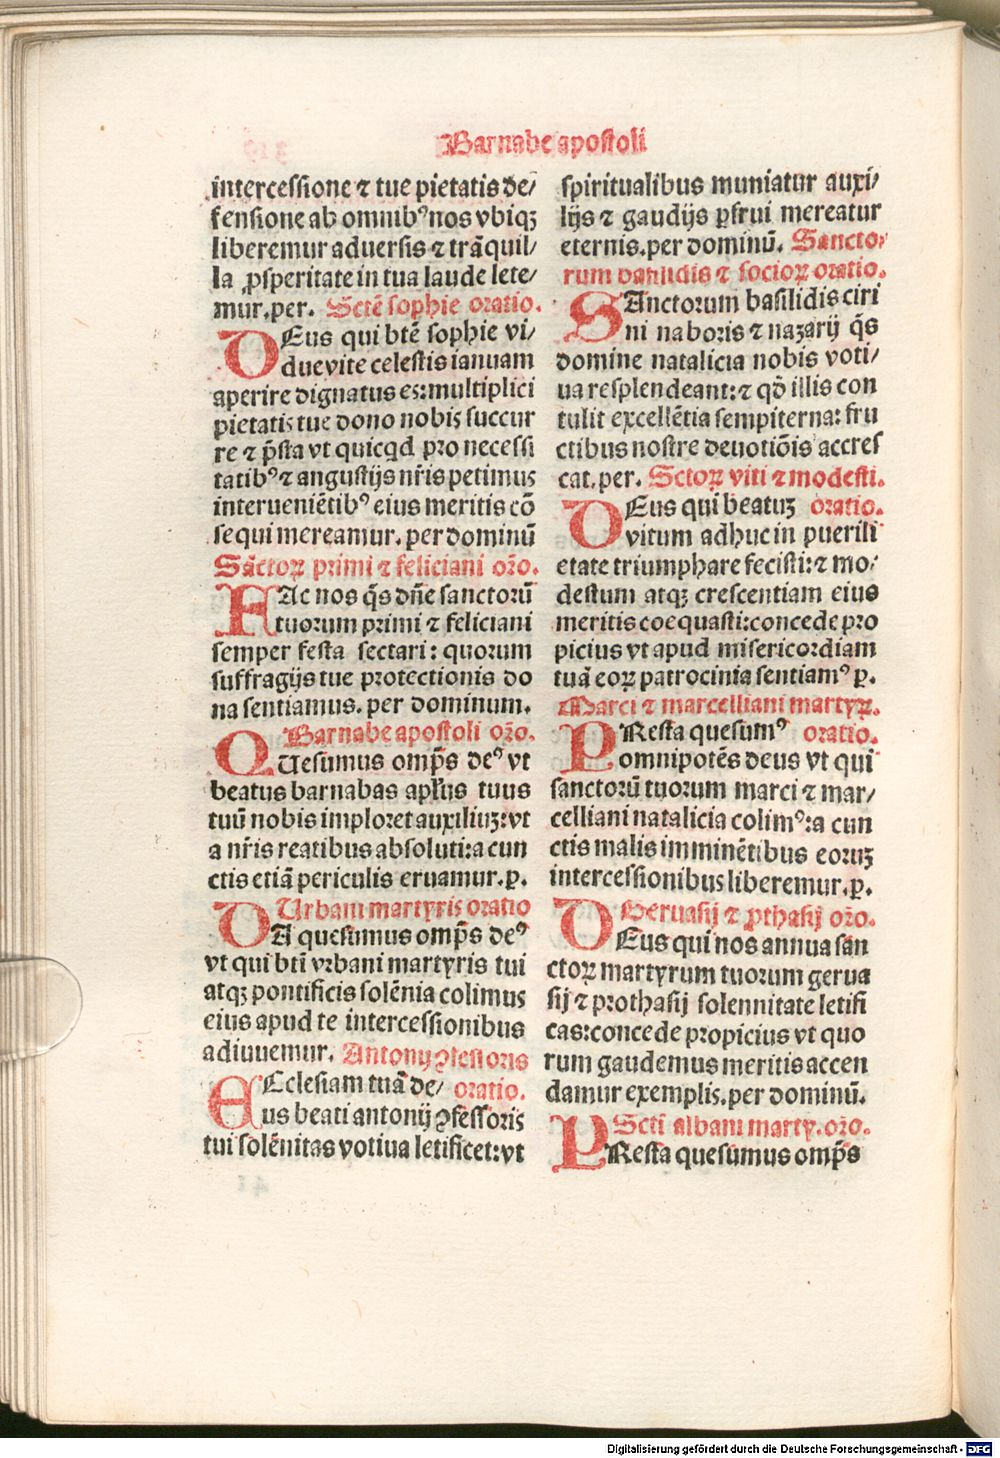 Barnabe apostoli
intercessione ⁊ tue pietatis de/
fensione ab omnibꝰ nos vbiqꝫ
liberemur aduersis ⁊ trāquil/
la ꝓsperitate in tua laude lete/
mur.per. Sctē sophie oratio.
DEus qui btē sophie vi/
due vite celestis ianuam
aperire dignatus es:multiplici
pietatis tue dono nobis succur
re ⁊ p̄sta vt quicqd pro necessi
tatibꝰ ⁊ angustijs nr̄is petimus
interueniētibꝰ eius meritis cō
sequi mereamur. per dominū
Sāctoꝝ primi ⁊ feliciani oro̅.
FAc nos q̄s dn̄e sanctorū
tuorum primi ⁊ feliciani
semper festa sectari: quorum
suffragijs tue protectionis do
na sentiamus. per dominum.
Barnabe apostoli oro̅.
QUesumus omp̄s deꝰ vt
beatus barnabas apl̄us tuus
tuū nobis imploret auxiliuꝫ:vt
a nr̄is reatibus absoluti:a cun
ctis etiā periculis eruamur.p.
Urbani martyris oratio
DA quesumus omp̄s deꝰ
vt qui bti̅ vrbani martyris tui
atqꝫ pontificis solēnia colimus
eius apud te intercessionibus
adiuuemur. Antonij ꝯfessoris
EEclesiam tuā de/ oratio.
us beati antonij ꝯfessoris
tui solēnitas votiua letificet:vt
spiritualibus muniatur auxi/
lijs ⁊ gaudijs ꝑfrui mereatur
eternis.per dominū. Sancto/
rum basilidis ⁊ socioꝝ oratio.
SAnctorum basilidis ciri
ni naboris ⁊ nazarij q̄s
domine natalicia nobis voti/
ua resplendeant:⁊ qd̄ illis con
tulit excellētia sempiterna: fru
ctibus nostre deuotiōis accres
cat.per. Sctoꝝ viti ⁊ modesti.
DEus qui beatuꝫ oratio.
vitum adhuc in puerili
etate triumphare fecisti:⁊ mo/
destum atqꝫ crescentiam eius
meritis coequasti:concede pro
picius vt apud misericordiam
tuā eoꝝ patrocinia sentiamꝰ p.
Marci ⁊ marcelliani martyꝝ.
PResta quesumꝰ oratio.
omnipotēs deus vt qui
sanctorū tuorum marci ⁊ mar/
celliani natalicia colimꝰ:a cun
ctis malis imminētibus eoruꝫ
intercessionibus liberemur.p.
Geruasij ⁊ ꝓthasij oro̅.
DEus qui nos annua san
ctoꝝ martyrum tuorum gerua
sij ⁊ prothasij solennitate letifi
cas:concede propicius vt quo
rum gaudemus meritis accen
damur exemplis.per dominū.
Scti̅ albani marty. oro̅.
PResta quesumus omp̄s
Digitalisierung gefördert durch die Deutsche Forschungsgemeinschaft - DFG